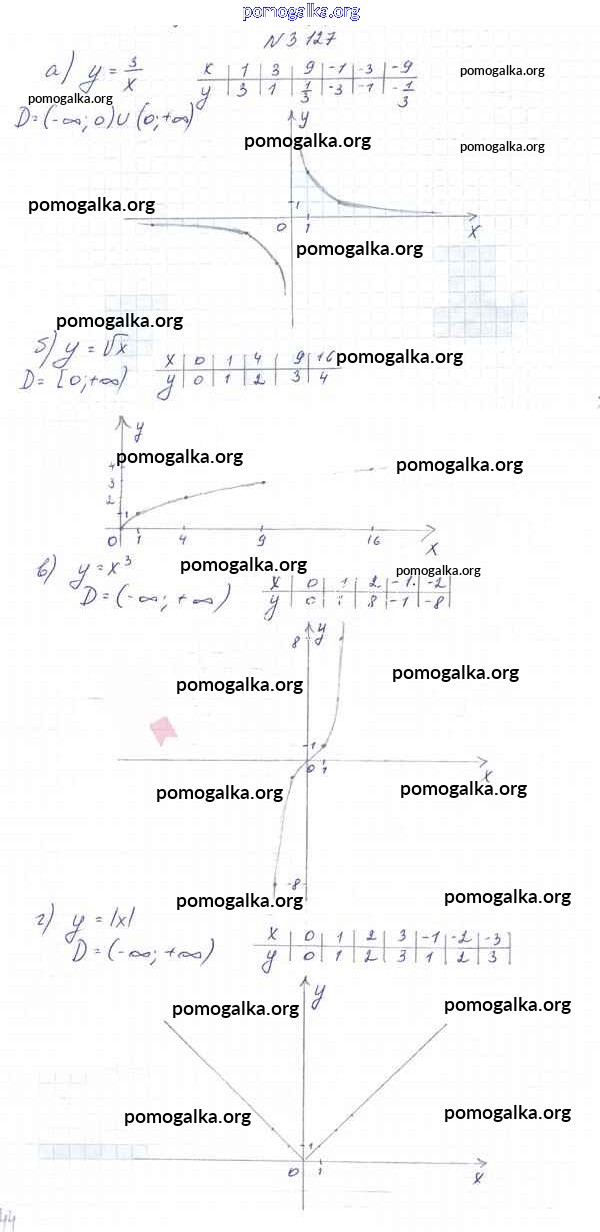 pomogalka.org
N 3 127
а) y = 3/x
x | 1 | 3 | 9 | -1 | -3 | -9
y | 3 | 1 | 1/3 | -3 | -1 | -1/3
pomogalka.org
pomogalka.org
D = (-∞; 0) ∪ (0; +∞)
y
pomogalka.org
pomogalka.org
pomogalka.org
1
0 1 x
pomogalka.org
pomogalka.org
б) y = √x
x | 0 | 1 | 4 | 9 | 16
y | 0 | 1 | 2 | 3 | 4
pomogalka.org
D = [0; +∞)
y
pomogalka.org
pomogalka.org
4
3
2
1
0 1 4 9 16 x
в) y = x³
pomogalka.org
pomogalka.org
D = (-∞; +∞)
x | 0 | 1 | 2 | -1 | -2
y | 0 | 1 | 8 | -1 | -8
8 y
pomogalka.org
pomogalka.org
1
0 1 x
pomogalka.org
pomogalka.org
-8
pomogalka.org
pomogalka.org
г) y = |x|
D = (-∞; +∞)
x | 0 | 1 | 2 | 3 | -1 | -2 | -3
y | 0 | 1 | 2 | 3 | 1 | 2 | 3
y
pomogalka.org
pomogalka.org
pomogalka.org
pomogalka.org
1
0 1 x
44